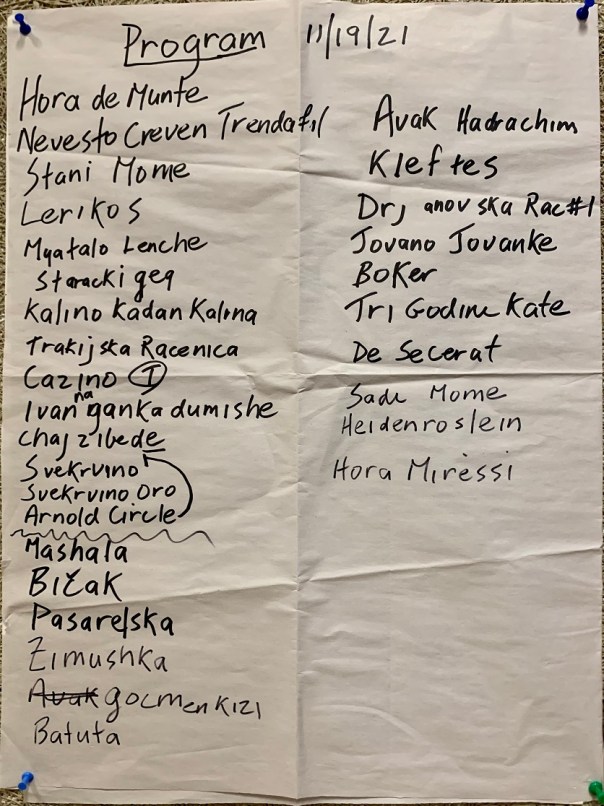 Program 11/19/21
Hora de Munte
Nevesto Creven Trendafil
Stani Mome
Lerikos
Myatalo Lenche
Staracki geg
Kalino Kadan Kalina
Trakijska Racenica
Cazino I
Ivan na ganka dumishe
Chaj zibede
Svekrvino
Svekrvino Oro
Arnold Circle
Mashala
Bičak
Pasarelska
Zimushka
Avak gocmen Kizi
Batuta
Avak Hadrachim
Kleftes
Drj anov ska Rac#1
Jovano Jovanke
Boker
Tri Godine Kate
De Secerat
Sadi Mome
Heidenroslein
Hora Miressi